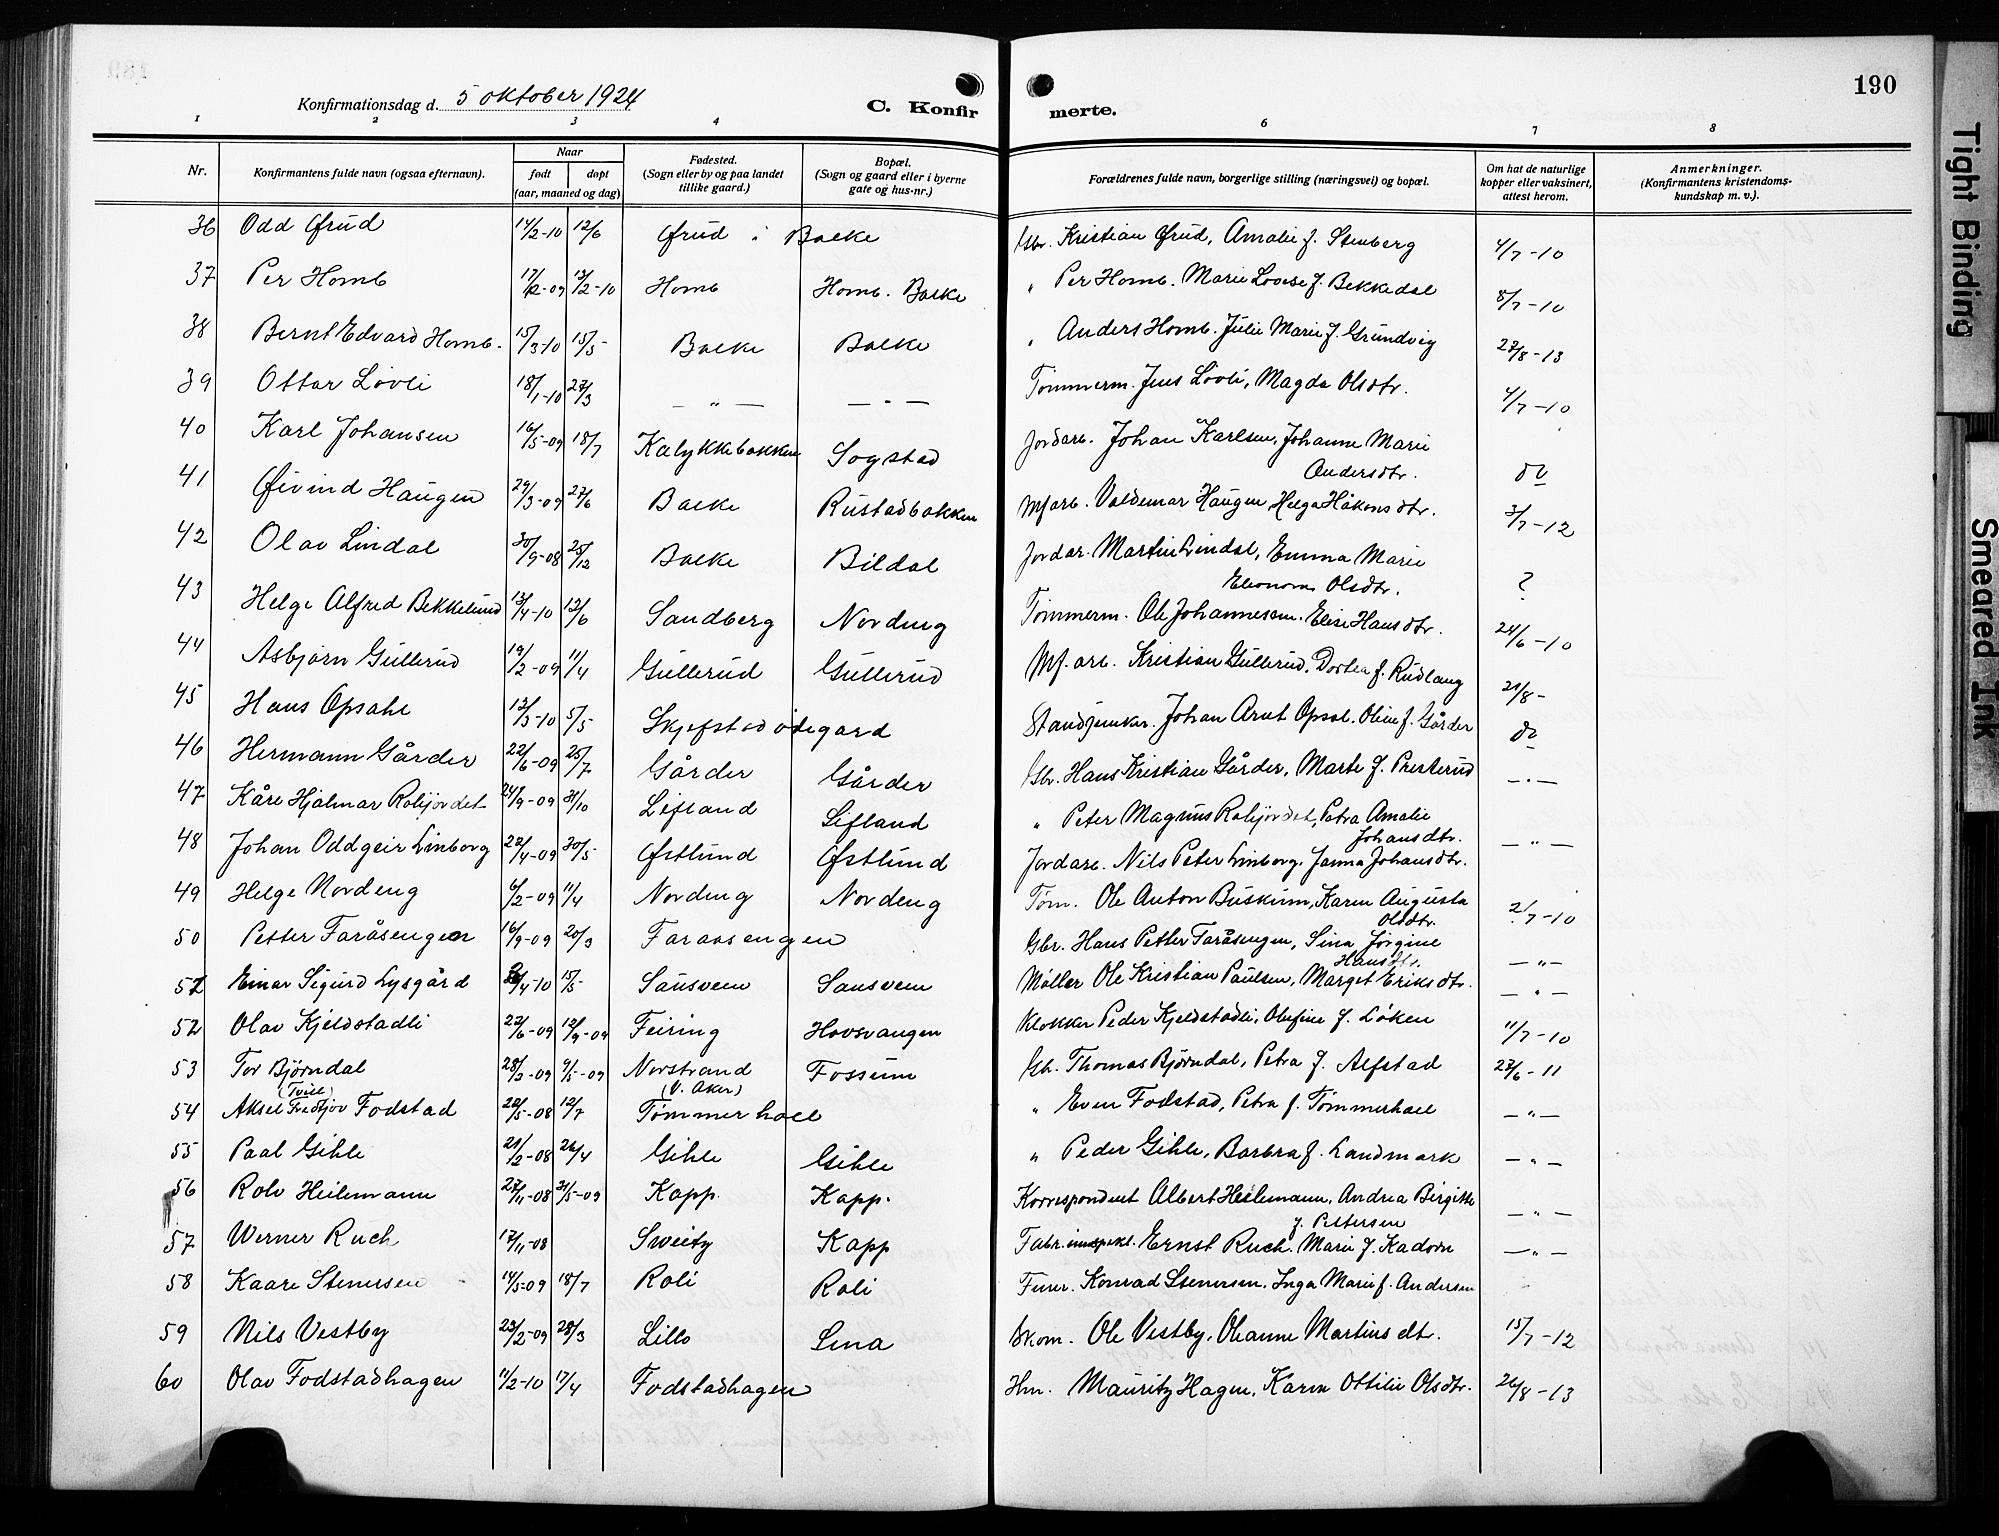 190
Konfirmationsdag d. 5 oktober 1924
C. Konfirmerte.
1 2 3 4 6 7 8
Nr. Konfirmantens fulde navn (ogsaa efternavn). Naar født døpt (aar, maaned og dag) Fødested. (Sogn eller by og paa landet tillike gaard.) Bopæl. (Sogn og gaard eller i byerne gate og hus-nr.) Forældrenes fulde navn, borgerlige stilling (næringsvei) og bopæl. Om hat de naturlige kopper eller vaksinert, attest herom. Anmerkninger. (Konfirmantens kristendomskundskap m. v.).
36 Odd Øfrud 14/2-10 12/6 Øfrud i Balke Gbr. Kristian Øfrud, Amalie f. Stenberg 4/7-10
37 Per Homb 17/12-09 13/2-10 Homb Homb. Balke " Per Homb. Marie Lovise f. Bekkedal 8/7-10
38 Bernt Edvard Homb. 15/3-10 15/5 Balke Balke " Anders Homb. Julie Marie f. Grundvig 27/8-13
39 Ottar Løvli 18/1-10 27/3 — " — — " — Tømmerm. Jens Løvli, Magda Olsdtr. 4/7-10
40 Karl Johansen 16/5-09 18/7 Kalykkebakken Sogstad Jordarb. Johan Karlsen, Johanne Marie Andersdtr. do
41 Øivind Haugen 29/3-09 27/6 Balke Rustadbakken Mf arb. Valdemar Haugen, Helga Håkonsdtr. 3/7-12
42 Olav Lindal 30/9-08 25/12 Balke Bildal Jordar. Martin Lindal, Emma Marie Eleonora Olsdtr. ?
43 Helge Alfred Bekkelund 13/4-10 12/6 Sandberg Nordeng Tømmerm. Ole Johannesen. Elise Hansdtr. 24/6-10
44 Asbjørn Gullerud 19/2-09 11/4 Gullerud Gullerud Mf. arb. Kristian Gullerud, Dortea f. Rudlang 21/8-
45 Hans Opsahl 12/3-10 5/5 Skjefstadødegard Johan Arnt Opsal. Oline f. Gårder do
46 Hermann Gårder 22/6-09 25/7 Gårder Gårder Gbr. Hans Kristian Gårder, Marte f. Presterud — " —
47 Kåre Hjalmar Rolijordet 24/9-09 31/10 Lifland Lifland " Peter Magnus Rolijordet, Petra Amalie Johansdtr.
48 Johan Oddgeir Linborg 22/4-09 30/5 Østlund Østlund Jordarb. Nils Peter Linborg, Janna Johansdtr. — " —
49 Helge Nordeng 6/2-09 11/4 Nordeng Nordeng Tøm. Ole Anton Buskum, Karen Augusta Olsdtr. 2/7-10
50 Petter Faråsengen 16/9-09 20/3 Faraasengen Gbr. Hans Petter Faråsengen, Sina Jørgine Hansdtr. — " —
51 Einar Sigurd Lysgård /4-10 15/5 Sausvem Sausvem Møller Ole Kristian Paulsen, Marget Eriksdtr. — " —
52 Olav Kjeldstadli 27/6-09 12/9-09 Feiring Hovsvangen Klokker Peder Kjeldstadli, Olufine f. Løken 11/7-10
53 Tor Bjørndal 28/3-09 9/5-09 Norstrand (V. Aker) Fossum Gb. Thomas Bjørndal, Petra f. Alfstad 27/6-11
54 Aksel Fredtjov (Tvill) Fodstad 22/5-08 12/7 Tømmerhael " Even Fodstad, Petra f. Tømmerhael — " —
55 Paal Gihle 21/2-08 26/4 Gihle Gihle " Peder Gihle, Barbra f. Landmark — " —
56 Rolv Heilemann 27/11-08 31/5-09 Kapp. Kapp. Korrespondent Albert Heilemann, Andrea Birgitte f. Pettersen — " —
57 Werner Ruch 17/11-08 Sweitz Kapp Fabr. inspekt. Ernst Ruch. Marie f. Kadorn — " —
58 Kaare Stenersen 14/5-09 18/7 Roli Roli Furer. Konrad Stenersen. Inga Marie f. Andersen
59 Nils Vestby 23/2-09 28/3 Lillo Lena Skom. Ole Vestby, Oleanne Martinsdtr. 15/7-12
60 Olav Fodstadhagen 11/2-10 17/4 Fodstadhagen Hm. Mauritz Hagen, Karen Ottilie Olsdtr. 26/8-13
Tight Binding
Smeared Ink